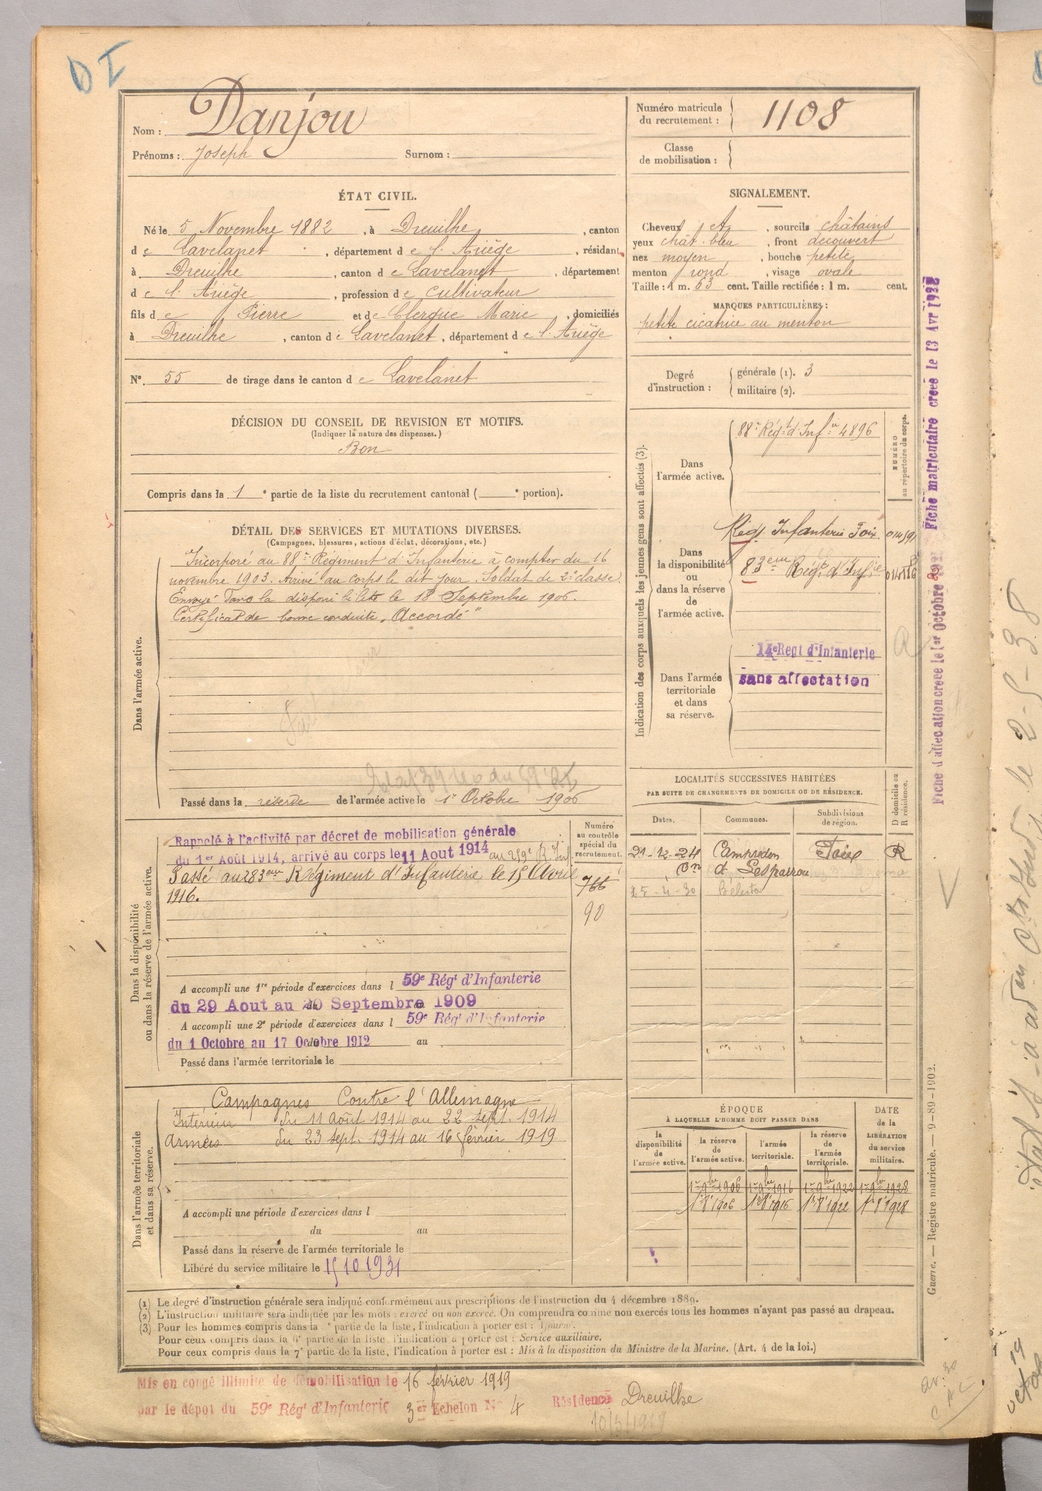 DI
Nom : Danjou
Prénoms : Joseph Surnom :
Numéro matricule du recrutement : 1108
Classe de mobilisation :
ÉTAT CIVIL.
Né le 5 Novembre 1882, à Dreuilhe, canton
de Lavelanet, département de l'Ariège, résidant
à Dreuilhe, canton de Lavelanet, département
de l'Ariège, profession de cultivateur
fils de Pierre et de Clergue Marie, domiciliés
à Dreuilhe, canton de Lavelanet, département de l'Ariège
N° 55 de tirage dans le canton de Lavelanet
SIGNALEMENT.
Cheveux et, sourcils châtains
yeux chât. bleu, front découvert
nez moyen, bouche petite
menton rond, visage ovale
Taille : 1 m. 63 cent. Taille rectifiée : 1 m. cent.
MARQUES PARTICULIÈRES :
petite cicatrice au menton
Degré d'instruction : générale (1). 3
militaire (2).
DÉCISION DU CONSEIL DE REVISION ET MOTIFS.
(Indiquer la nature des dispenses.)
Bon
Compris dans la 1e partie de la liste du recrutement cantonal ( e portion).
DÉTAIL DES SERVICES ET MUTATIONS DIVERSES.
(Campagnes, blessures, actions d'éclat, décorations, etc.)
Dans l'armée active.
Incorporé au 88e Régiment d'Infanterie à compter du 16
novembre 1903. Arrivé au corps le dit jour. Soldat de 2e classe
Envoyé dans la disponibilité le 18 Septembre 1906.
Certificat de bonne conduite "Accordé"
Passé dans la réserve de l'armée active le 1er Octobre 1906
Indication des corps auxquels les jeunes gens sont affectés (3).
NUMÉRO au répertoire du corps.
Dans l'armée active.
88e Régt d'Infie 4896
Dans la disponibilité ou dans la réserve de l'armée active.
Rég. Infanterie Foix
83eme Régt d'Infie
Dans l'armée territoriale et dans sa réserve.
14e Regt d'Infanterie
sans affectation
Dans la disponibilité ou dans la réserve de l'armée active.
Rappelé à l'activité par décret de mobilisation générale
du 1er Août 1914, arrivé au corps le 11 Aout 1914 au 259e R. Inf
Passé au 283eme Régiment d'Infanterie le 15 Avril
1916.
Numéro au contrôle spécial du recrutement.
766
90
A accompli une 1re période d'exercices dans l 59e Régt d'Infanterie
du 29 Aout au 20 Septembre 1909
A accompli une 2e période d'exercices dans l 59e Régt d'Infanterie
du 1 Octobre au 17 Octobre 1912 au
Passé dans l'armée territoriale le
LOCALITÉS SUCCESSIVES HABITÉES
PAR SUITE DE CHANGEMENTS DE DOMICILE OU DE RÉSIDENCE.
Dates. Communes. Subdivisions de région. D domicile ou R résidence.
21-12-24 Campredon Foix R
Cne d'Lesparrou
25-4-30 Bélesta
Dans l'armée territoriale et dans sa réserve.
Campagnes Contre l'Allemagne
Intérieur du 11 août 1914 au 22 sept. 1914
Armées du 23 sept. 1914 au 16 février 1919
A accompli une période d'exercices dans l
du au
Passé dans la réserve de l'armée territoriale le
Libéré du service militaire le 15 10 1931
ÉPOQUE
À LAQUELLE L'HOMME DOIT PASSER DANS
la disponibilité de l'armée active.
la réserve de l'armée active.
l'armée territoriale.
la réserve de l'armée territoriale.
DATE de la LIBÉRATION du service militaire.
1er 9bre 1906 1er 9bre 1916 1er 9bre 1922 1er 9bre 1928
1er 8e 1906 1er 8e 1916 1er 8e 1922 1er 8e 1928
(1) Le degré d'instruction générale sera indiqué conformément aux prescriptions de l'instruction du 4 décembre 1889.
(2) L'instruction militaire sera indiquée par les mots : exercé ou non exercé. On comprendra comme non exercés tous les hommes n'ayant pas passé au drapeau.
(3) Pour les hommes compris dans la e partie de la liste, l'indication à porter est : Ajourné.
Pour ceux compris dans la 6e partie de la liste, l'indication à porter est : Service auxiliaire.
Pour ceux compris dans la 7e partie de la liste, l'indication à porter est : Mis à la disposition du Ministre de la Marine. (Art. 4 de la loi.)
Mis en congé illimité de démobilisation le 16 février 1919
par le dépôt du 59e Régt d'Infanterie 3er Echelon No 4 Résidence Dreuilhe
Fiche matriculaire créée le 13 Avr 1932
Fiche d'affectation créée le 1er Octobre
Guerre. — Registre matricule. — 9-89-1902.